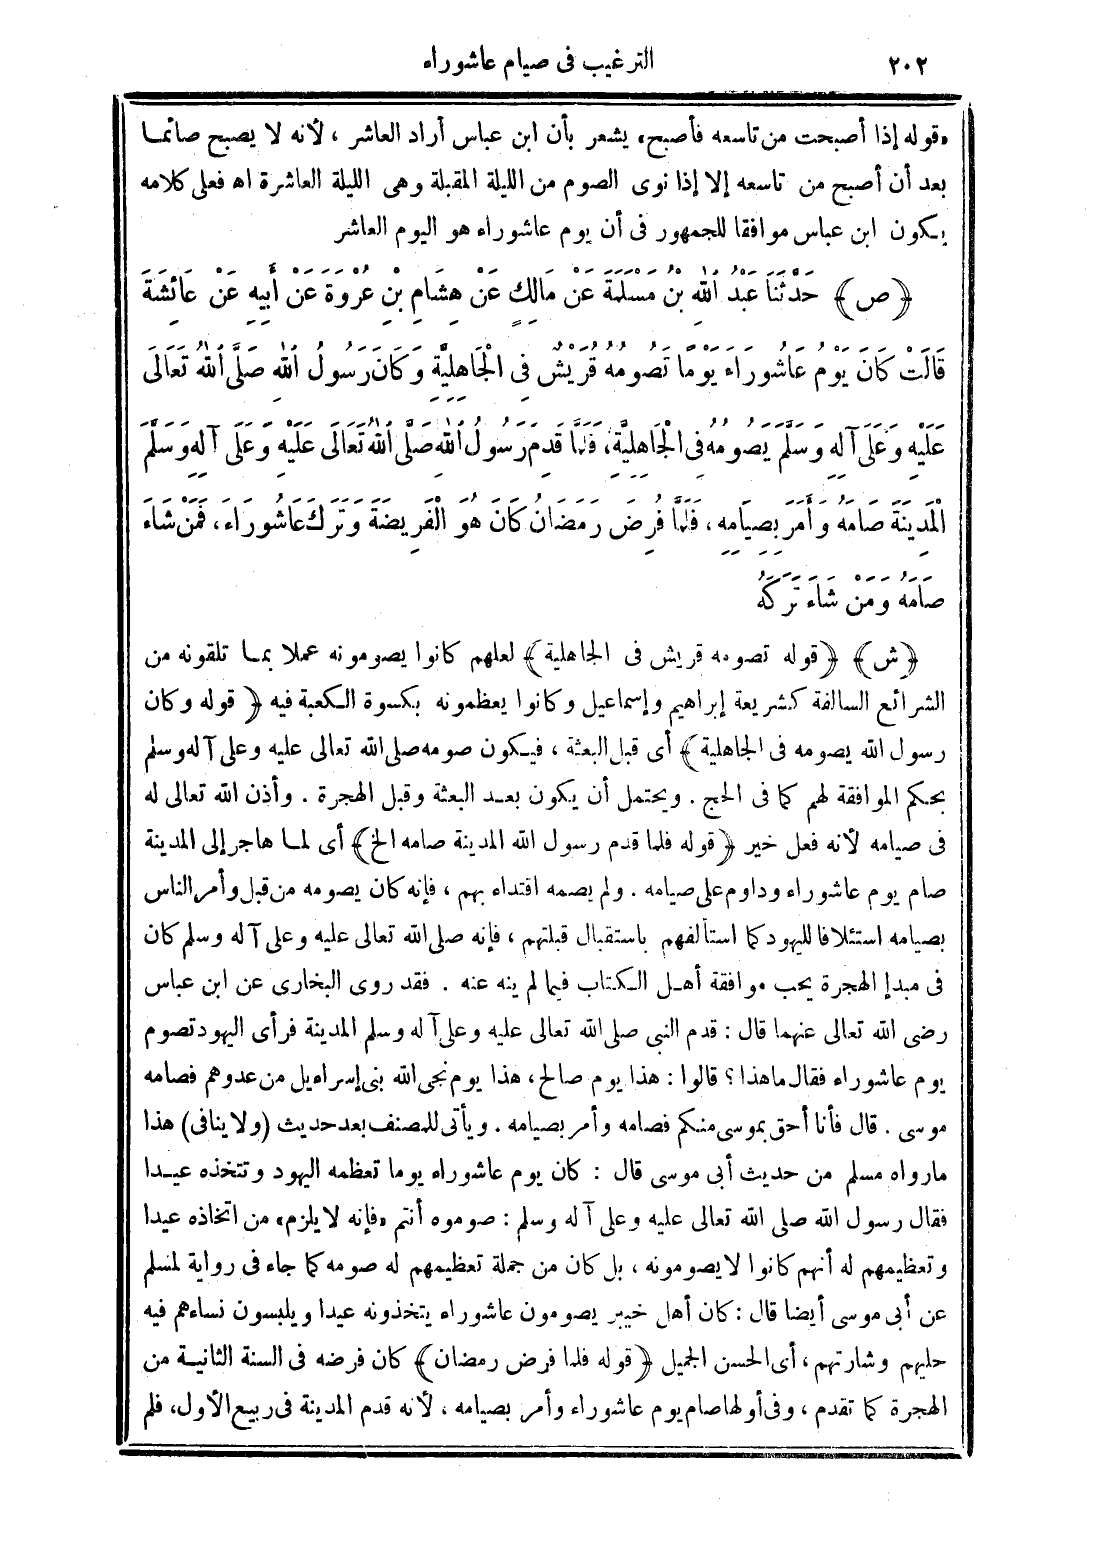 ٢٠٢ الترغيب فى صيام عاشوراء
«قوله إذا أصبحت من تاسعه فأصبح» يشعر بأن ابن عباس أراد العاشر ، لأنه لا يصبح صائمـا
بعد أن أصبح من تاسعه إلا إذا نوى الصوم من الليلة المقبلة وهى الليلة العاشرة اه فعلى كلامه
يكون ابن عباس موافقا للجمهور فى أن يوم عاشوراء هو اليوم العاشر
﴿ص﴾ حَدَّثَنَا عَبْدُ اللهِ بْنُ مَسْلَمَةَ عَنْ مَالِكٍ عَنْ هِشَامِ بْنِ عُرْوَةَ عَنْ أَبِيهِ عَنْ عَائِشَةَ
قَالَتْ كَانَ يَوْمُ عَاشُورَاءَ يَوْمًا تَصُومُهُ قُرَيْشٌ فِى الْجَاهِلِيَّةِ وَكَانَ رَسُولُ اللهِ صَلَّى اللهُ تَعَالَى
عَلَيْهِ وَعَلَى آلِهِ وَسَلَّمَ يَصُومُهُ فِى الْجَاهِلِيَّةِ، فَلَمَّا قَدِمَ رَسُولُ اللهِ صَلَّى اللهُ تَعَالَى عَلَيْهِ وَعَلَى آلِهِ وَسَلَّمَ
الْمَدِينَةَ صَامَهُ وَأَمَرَ بِصِيَامِهِ ، فَلَمَّا فُرِضَ رَمَضَانُ كَانَ هُوَ الْفَرِيضَةَ وَتَرَكَ عَاشُورَاءَ، فَمَنْ شَاءَ
صَامَهُ وَمَنْ شَاءَ تَرَكَهُ
﴿ش﴾ ﴿قوله تصومه قريش فى الجاهلية﴾ لعلهم كانوا يصومونه عملا بمـا تلقونه من
الشرائع السالفة كشريعة إبراهيم وإسماعيل وكانوا يعظمونه بكسوة الكعبة فيه ﴿ قوله وكان
رسول الله يصومه فى الجاهلية﴾ أى قبل البعثة ، فيكون صومه صلى الله تعالى عليه وعلى آله وسلم
بحكم الموافقة لهم كما فى الحج . ويحتمل أن يكون بعـد البعثة وقبل الهجرة . وأذن الله تعالى له
فى صيامه لأنه فعل خير ﴿قوله فلما قدم رسول الله المدينة صامه الخ﴾ أى لمـا هاجر إلى المدينة
صام يوم عاشوراء وداوم على صيامه . ولم يصمه اقتداء بهم ، فإنه كان يصومه من قبل وأمر الناس
بصيامه استئلافا لليهود كما استألفهم باستقبال قبلتهم ، فإنه صلى الله تعالى عليه وعلى آله وسلم كان
فى مبدإ الهجرة يحب موافقة أهـل الكتاب فيما لم ينه عنه . فقد روى البخارى عن ابن عباس
رضى الله تعالى عنهما قال : قدم النبى صلى الله تعالى عليه وعلى آله وسلم المدينة فرأى اليهود تصوم
يوم عاشوراء فقال ماهذا ؟ قالوا : هذا يوم صالح، هذا يوم نجى الله بنى إسراءيل من عدوهم فصامه
موسى . قال فأنا أحق بموسى منكم فصامه وأمر بصيامه . ويأتى للمصنف بعد حديث (ولا ينافى) هذا
مارواه مسلم من حديث أبى موسى قال : كان يوم عاشوراء يوما تعظمه اليهود وتتخذه عيـدا
فقال رسول الله صلى الله تعالى عليه وعلى آله وسلم : صوموه أنتم «فإنه لا يلزم» من اتخاذه عيدا
وتعظيمهم له أنهم كانوا لا يصومونه ، بل كان من جملة تعظيمهم له صومه كما جاء فى رواية لمسلم
عن أبى موسى أيضا قال : كان أهل خيبر يصومون عاشوراء يتخذونه عيدا ويلبسون نساءهم فيه
حليهم وشارتهم ، أى الحسن الجميل ﴿قوله فلما فرض رمضان﴾ كان فرضه فى السنة الثانيـة من
الهجرة كما تقدم ، وفى أولها صام يوم عاشوراء وأمر بصيامه ، لأنه قدم المدينة فى ربيع الأول، فلم